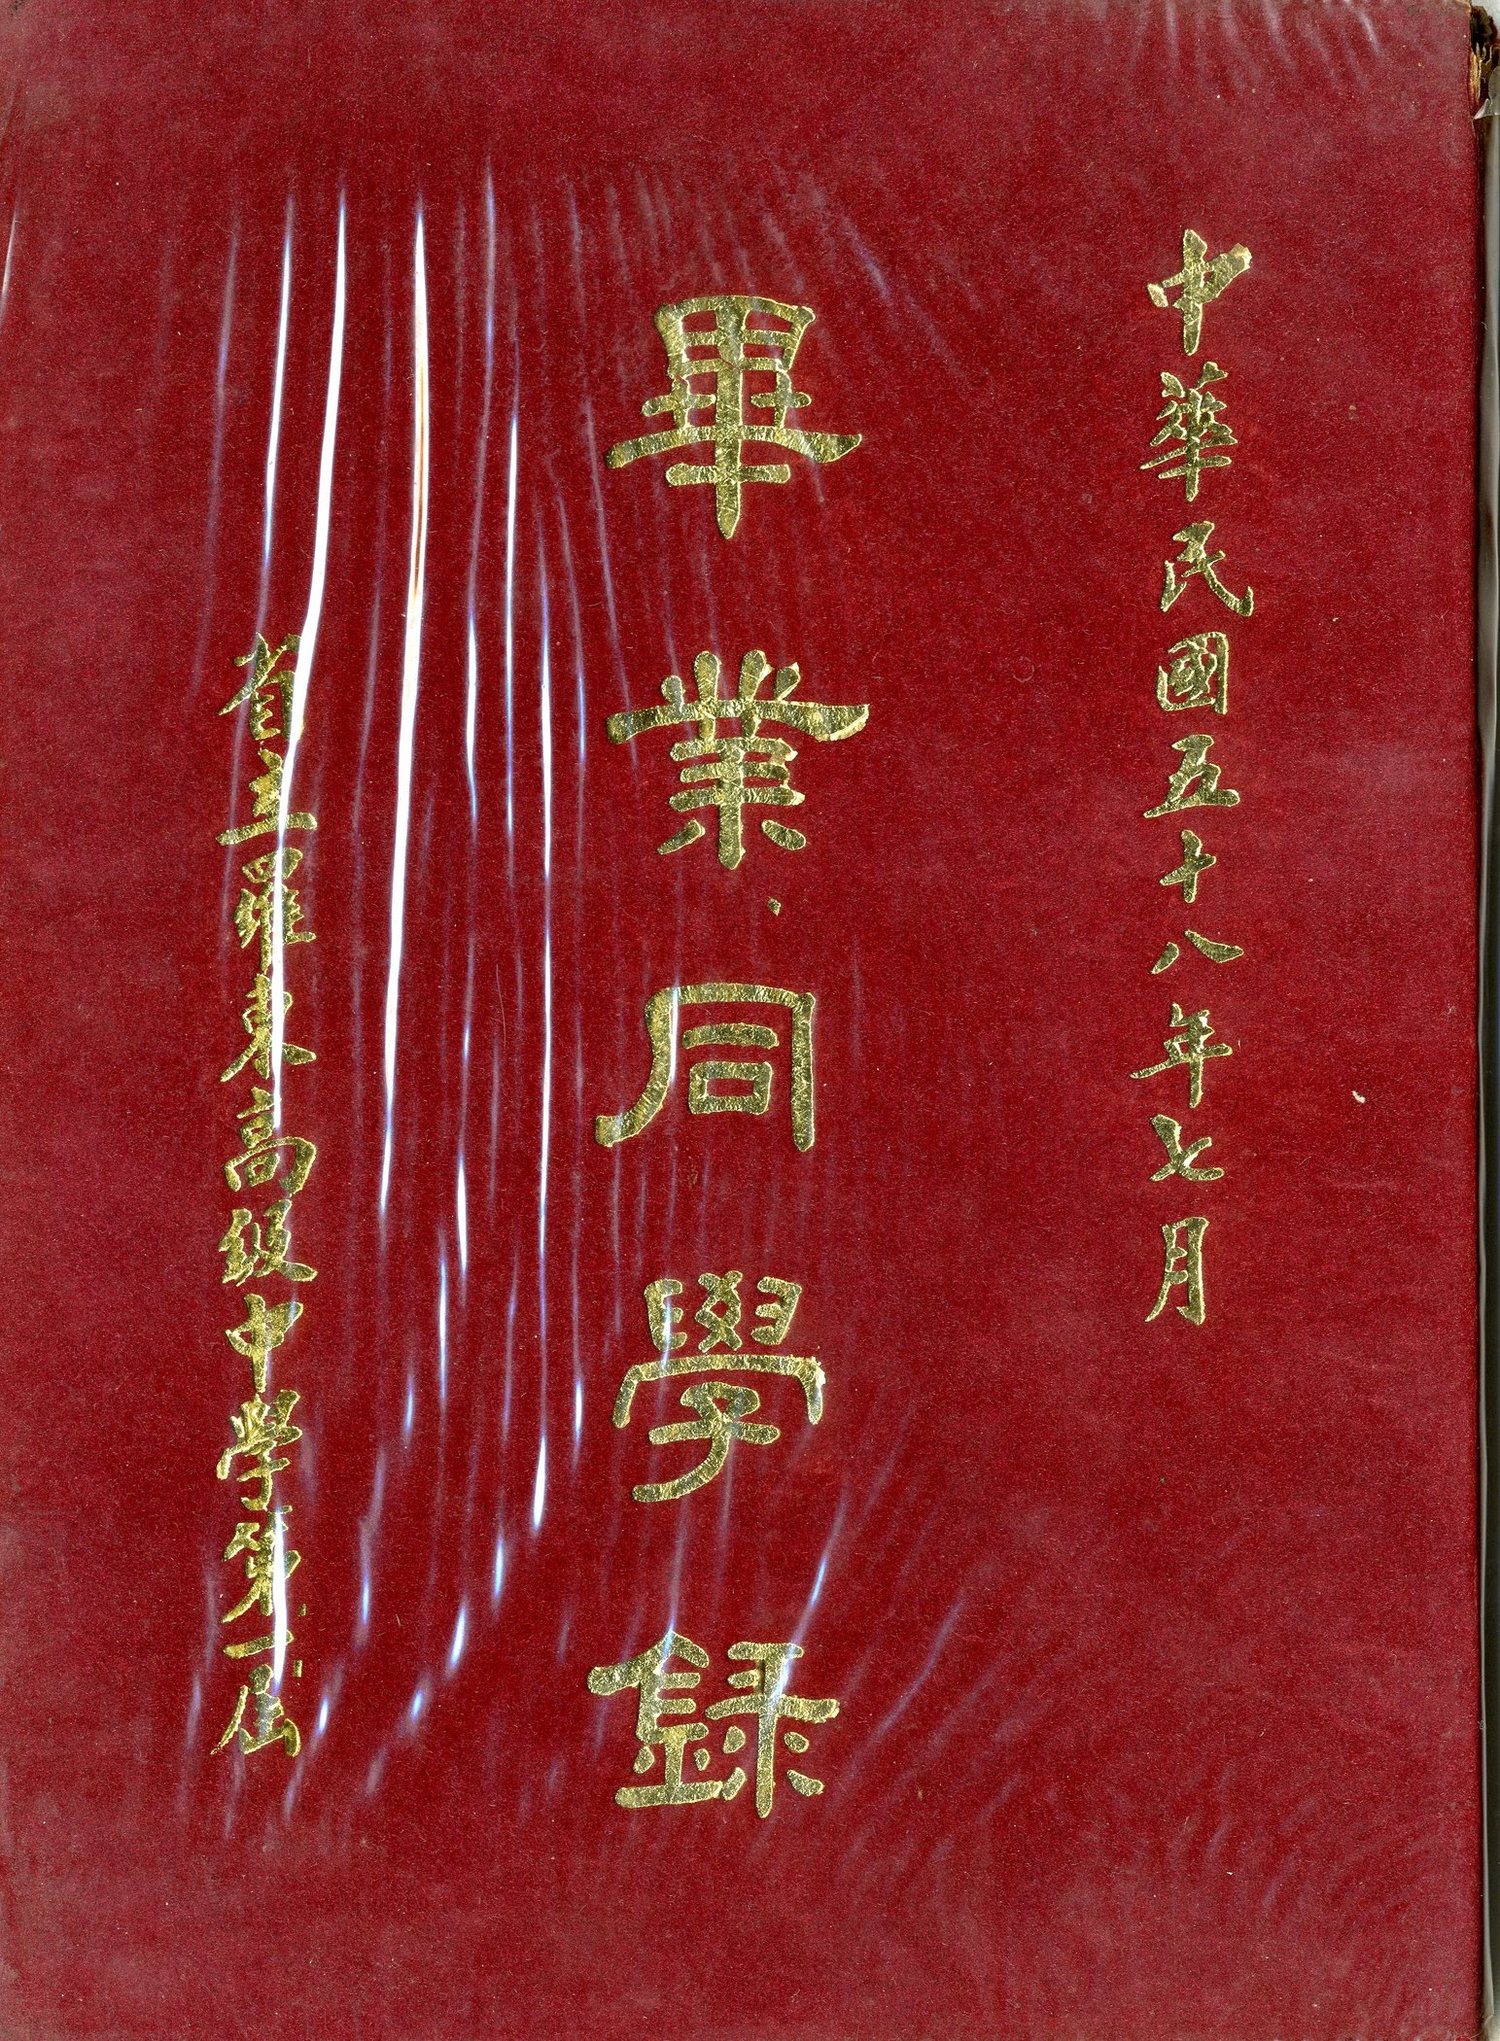 中華民國五十八年七月
畢業同學錄
省立羅東高級中學第一屆